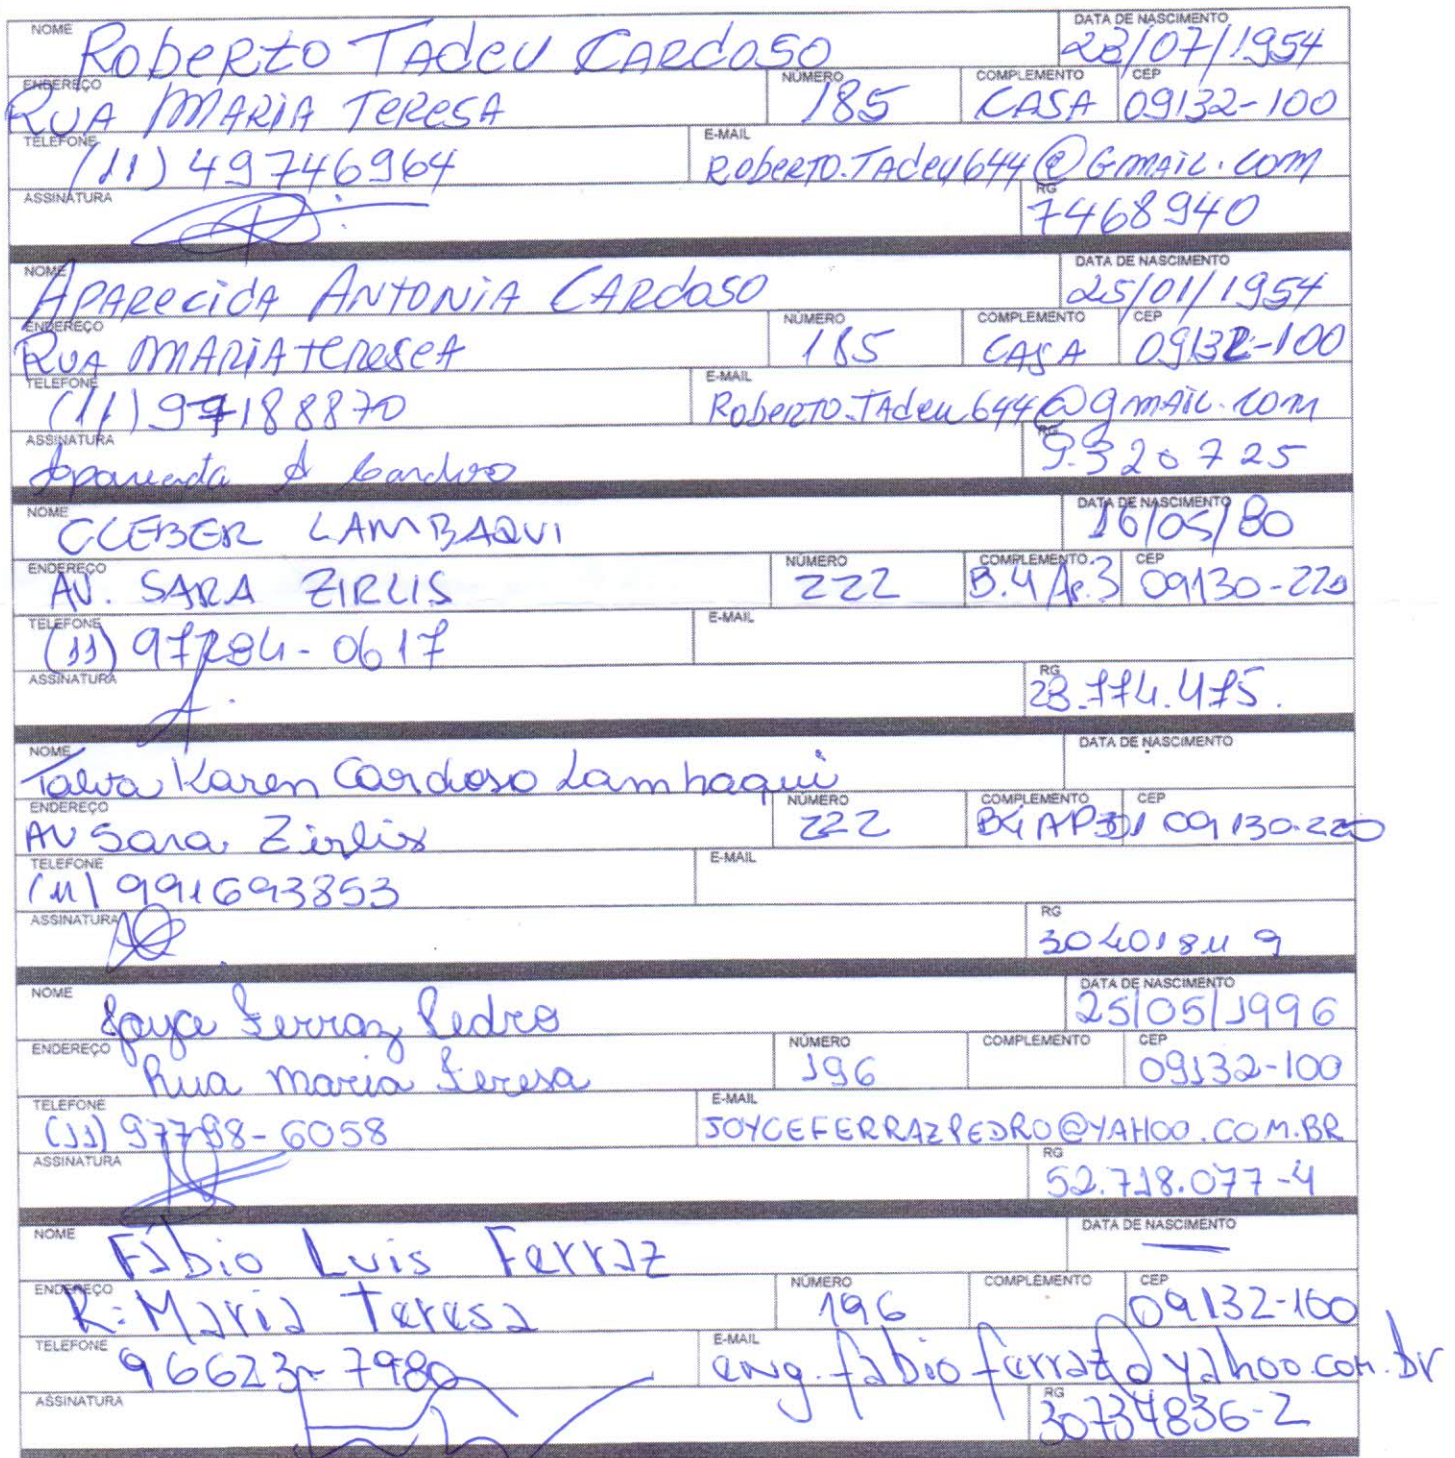 NOME Roberto Tadeu Cardoso DATA DE NASCIMENTO 23/07/1954
ENDEREÇO Rua Maria Teresa NÚMERO 185 COMPLEMENTO CASA CEP 09132-100
TELEFONE (11) 49746964 E-MAIL Roberto.Tadeu644@Gmail.com
ASSINATURA RG 7468940
NOME Aparecida Antonia Cardoso DATA DE NASCIMENTO 25/01/1954
ENDEREÇO Rua Maria NÚMERO 185 COMPLEMENTO CASA CEP 09132-100
TELEFONE (11) 997188870 E-MAIL Roberto.Tadeu644@gmail.com
ASSINATURA Aparecida A Cardoso RG 9.320725
NOME CLEBER LAMBAQUI DATA DE NASCIMENTO 16/05/80
ENDEREÇO AV. SARA ZIRLIS NÚMERO 222 COMPLEMENTO B.4 Ap.3 CEP 09130-220
TELEFONE (11) 97284-0617 E-MAIL
ASSINATURA RG 28.774.475.
NOME Karen Cardoso Lambaqui DATA DE NASCIMENTO
ENDEREÇO AV Sara Zirlis NÚMERO 222 COMPLEMENTO B4 AP31 CEP 09130-220
TELEFONE (11) 991693853 E-MAIL
ASSINATURA RG
NOME Joyce Ferraz Pedro DATA DE NASCIMENTO 25/05/1996
ENDEREÇO Rua Maria Teresa NÚMERO 196 COMPLEMENTO CEP 09132-100
TELEFONE (11) 97798-6058 E-MAIL JOYCEFERRAZPEDRO@YAHOO.COM.BR
ASSINATURA RG 52.718.077-4
NOME Fábio Luis Ferraz DATA DE NASCIMENTO —
ENDEREÇO R: Maria Teresa NÚMERO 196 COMPLEMENTO CEP 09132-100
TELEFONE 96623-7980 E-MAIL eng.fabioferraz@yahoo.com.br
ASSINATURA RG 30734836-2